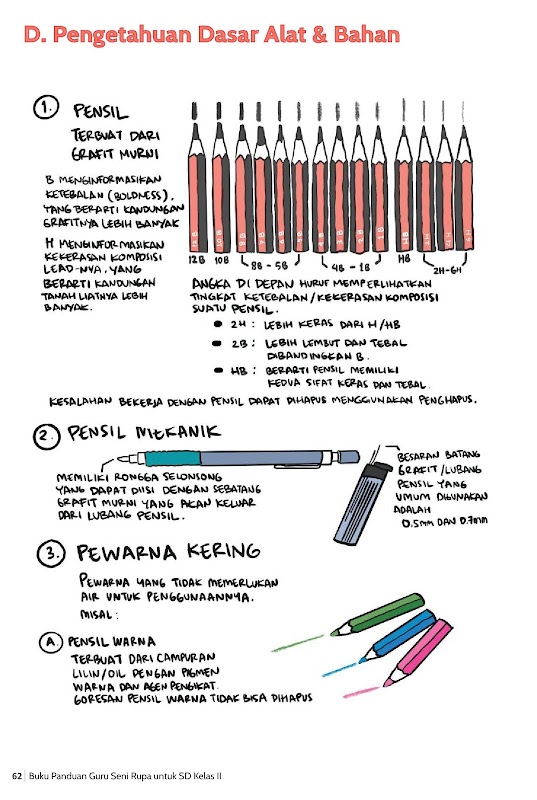 D. Pengetahuan Dasar Alat & Bahan
1. PENSIL
TERBUAT DARI
GRAFIT MURNI
B MENGINFORMASIKAN
KETEBALAN (BOLDNESS),
YANG BERARTI KANDUNGAN
GRAFITNYA LEBIH BANYAK
H MENGINFORMASIKAN
KEKERASAN KOMPOSISI
LEAD-NYA, YANG
BERARTI KANDUNGAN
TANAH LIATNYA LEBIH
BANYAK.
12B 10B 8B - 5B 4B - 1B HB 2H-6H
ANGKA DI DEPAN HURUF MEMPERLIHATKAN
TINGKAT KETEBALAN/KEKERASAN KOMPOSISI
SUATU PENSIL.
● 2H : LEBIH KERAS DARI H/HB
● 2B : LEBIH LEMBUT DAN TEBAL
DIBANDINGKAN B.
● HB : BERARTI PENSIL MEMILIKI
KEDUA SIFAT KERAS DAN TEBAL.
KESALAHAN BEKERJA DENGAN PENSIL DAPAT DIHAPUS MENGGUNAKAN PENGHAPUS.
2. PENSIL MEKANIK
MEMILIKI RONGGA SELONSONG
YANG DAPAT DIISI DENGAN SEBATANG
GRAFIT MURNI YANG AKAN KELUAR
DARI LUBANG PENSIL.
BESARAN BATANG
GRAFIT/LUBANG
PENSIL YANG
UMUM DIGUNAKAN
ADALAH
0.5mm DAN 0.7mm
3. PEWARNA KERING
PEWARNA YANG TIDAK MEMERLUKAN
AIR UNTUK PENGGUNAANNYA.
MISAL :
A. PENSIL WARNA
TERBUAT DARI CAMPURAN
LILIN/OIL DENGAN PIGMEN
WARNA DAN AGEN PENGIKAT.
GORESAN PENSIL WARNA TIDAK BISA DIHAPUS
62 | Buku Panduan Guru Seni Rupa untuk SD Kelas II